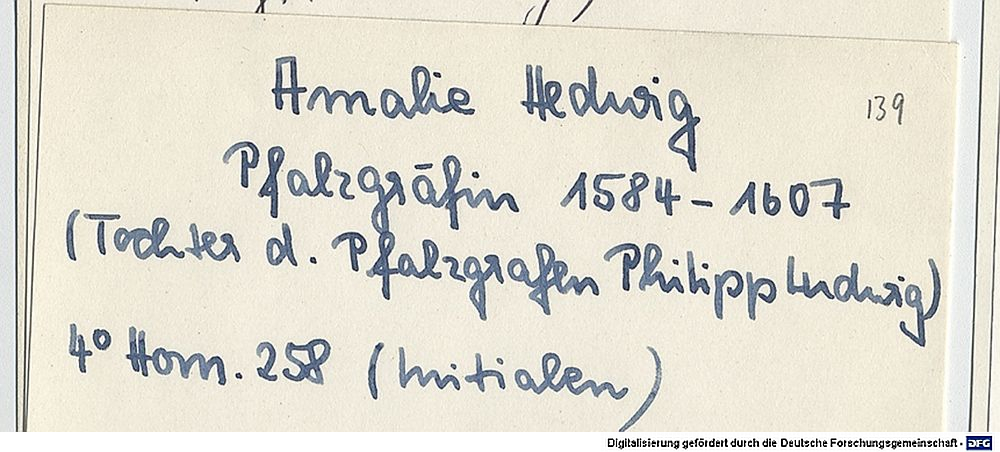 Amalie Hedwig
139
Pfalzgräfin 1584 - 1607
(Tochter d. Pfalzgrafen Philipp Ludwig)
4° Hom. 258 (Initialen)
Digitalisierung gefördert durch die Deutsche Forschungsgemeinschaft - DFG